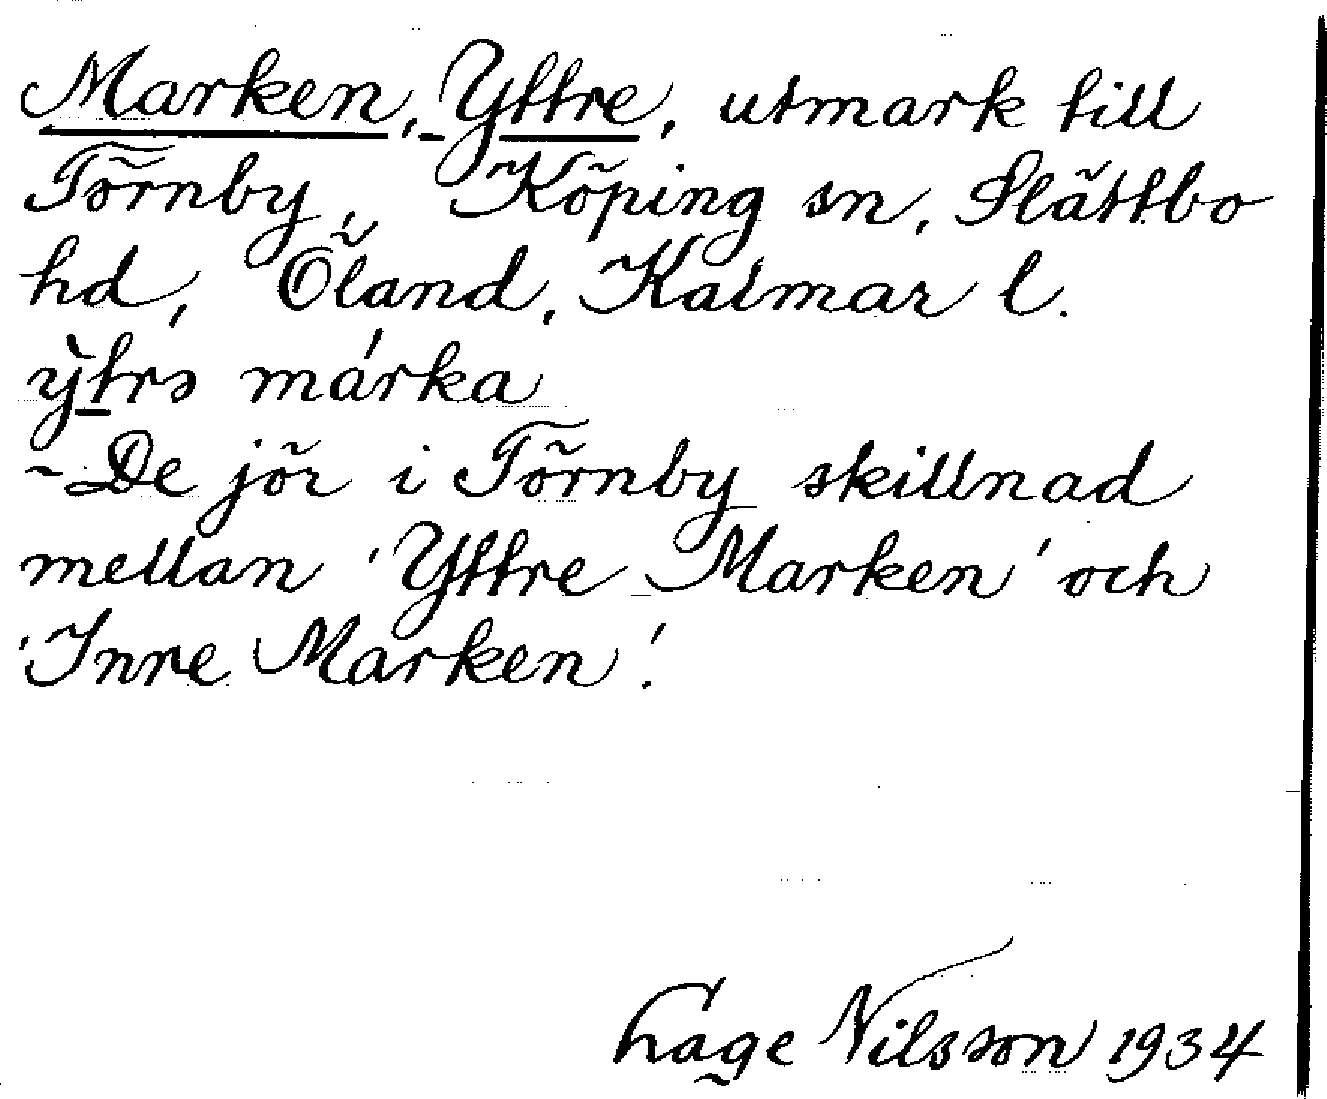 Marken, Yttre, utmark till
Törnby, Köping sn, Slättbo
hd, Öland, Kalmar l.
ỳtrə márka
- De jör i Törnby skillnad
mellan 'Yttre Marken' och
'Inre Marken'.
Nilsson 1934